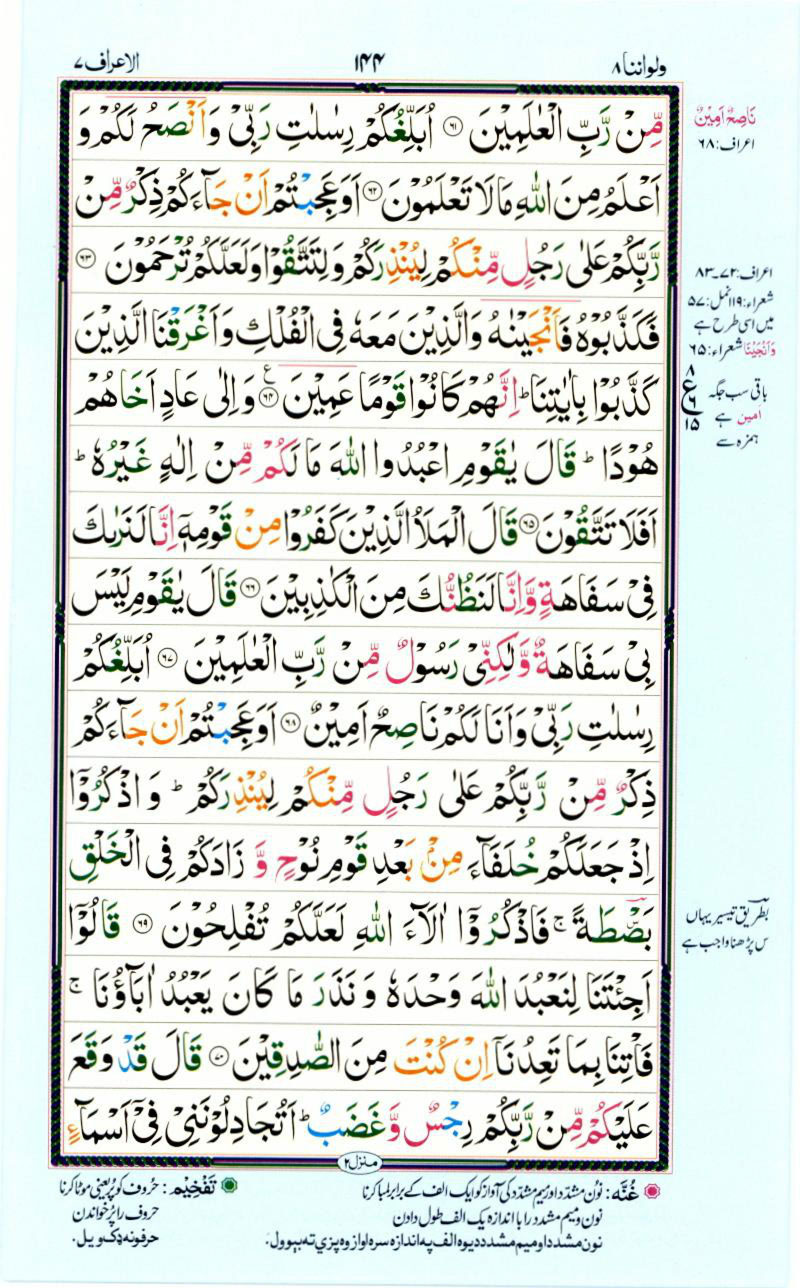 ولواننا ۸
۱۴۴
الاعراف ۷
مِّنْ رَّبِّ الْعٰلَمِيْنَ ۶۱ اُبَلِّغُكُمْ رِسٰلٰتِ رَبِّيْ وَاَنْصَحُ لَكُمْ وَ
اَعْلَمُ مِنَ اللّٰهِ مَا لَا تَعْلَمُوْنَ ۶۲ اَوَعَجِبْتُمْ اَنْ جَآءَكُمْ ذِكْرٌ مِّنْ
رَّبِّكُمْ عَلٰى رَجُلٍ مِّنْكُمْ لِيُنْذِرَكُمْ وَلِتَتَّقُوْا وَلَعَلَّكُمْ تُرْحَمُوْنَ ۶۳
فَكَذَّبُوْهُ فَاَنْجَيْنٰهُ وَالَّذِيْنَ مَعَهٗ فِي الْفُلْكِ وَاَغْرَقْنَا الَّذِيْنَ
كَذَّبُوْا بِاٰيٰتِنَا ؕ اِنَّهُمْ كَانُوْا قَوْمًا عَمِيْنَ ۶۴ ع وَاِلٰى عَادٍ اَخَاهُمْ
هُوْدًا ؕ قَالَ يٰقَوْمِ اعْبُدُوا اللّٰهَ مَا لَكُمْ مِّنْ اِلٰهٍ غَيْرُهٗ ؕ
اَفَلَا تَتَّقُوْنَ ۶۵ قَالَ الْمَلَاُ الَّذِيْنَ كَفَرُوْا مِنْ قَوْمِهٖٓ اِنَّا لَنَرٰىكَ
فِيْ سَفَاهَةٍ وَّاِنَّا لَنَظُنُّكَ مِنَ الْكٰذِبِيْنَ ۶۶ قَالَ يٰقَوْمِ لَيْسَ
بِيْ سَفَاهَةٌ وَّلٰكِنِّيْ رَسُوْلٌ مِّنْ رَّبِّ الْعٰلَمِيْنَ ۶۷ اُبَلِّغُكُمْ
رِسٰلٰتِ رَبِّيْ وَاَنَا لَكُمْ نَاصِحٌ اَمِيْنٌ ۶۸ اَوَعَجِبْتُمْ اَنْ جَآءَكُمْ
ذِكْرٌ مِّنْ رَّبِّكُمْ عَلٰى رَجُلٍ مِّنْكُمْ لِيُنْذِرَكُمْ ؕ وَاذْكُرُوْٓا
اِذْ جَعَلَكُمْ خُلَفَآءَ مِنْۢ بَعْدِ قَوْمِ نُوْحٍ وَّ زَادَكُمْ فِي الْخَلْقِ
بَصْۜطَةً ۚ فَاذْكُرُوْٓا اٰلَآءَ اللّٰهِ لَعَلَّكُمْ تُفْلِحُوْنَ ۶۹ قَالُوْٓا
اَجِئْتَنَا لِنَعْبُدَ اللّٰهَ وَحْدَهٗ وَنَذَرَ مَا كَانَ يَعْبُدُ اٰبَآؤُنَا ۚ
فَاْتِنَا بِمَا تَعِدُنَآ اِنْ كُنْتَ مِنَ الصّٰدِقِيْنَ ۷۰ قَالَ قَدْ وَقَعَ
عَلَيْكُمْ مِّنْ رَّبِّكُمْ رِجْسٌ وَّغَضَبٌ ؕ اَتُجَادِلُوْنَنِيْ فِيْٓ اَسْمَآءٍ
منزل ۲
نَاصِحٌ اَمِيْنٌ
اعراف: ۶۸
اعراف: ۷۲-۸۳
شعراء: ۱۱۹ نمل: ۵۷
میں اسی طرح ہے
وَاَنْجَيْنَا شعراء: ۶۵
۸
ع ۶
۱۵
باقی سب جگہ
امین ہے
ہمزہ سے
بطریق تیسیر یہاں
س پڑھنا واجب ہے
غُنَّه: نوُن مشدّد اور میم مشدّد کی آواز کو ایک الف کے برابر لمبا کرنا
نون و میم مشدد را با اندازه یک الف طول دادن
نون مشدد او میم مشدد د یوه الف په اندازه سره اواز وه پزې ته بېوول.
تَفْخِيْم: حُروف کو پُر یعنی موٹا کرنا
حروف را پُر خواندن
حرفونه ډک ویل.